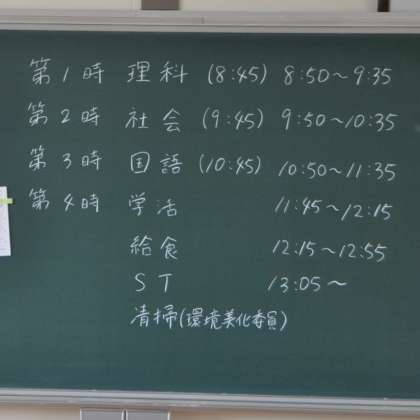 第1時 理科 (8:45) 8:50～9:35
第2時 社会 (9:45) 9:50～10:35
第3時 国語 (10:45) 10:50～11:35
第4時 学活 11:45～12:15
給食 12:15～12:55
ST 13:05～
清掃(環境美化委員)